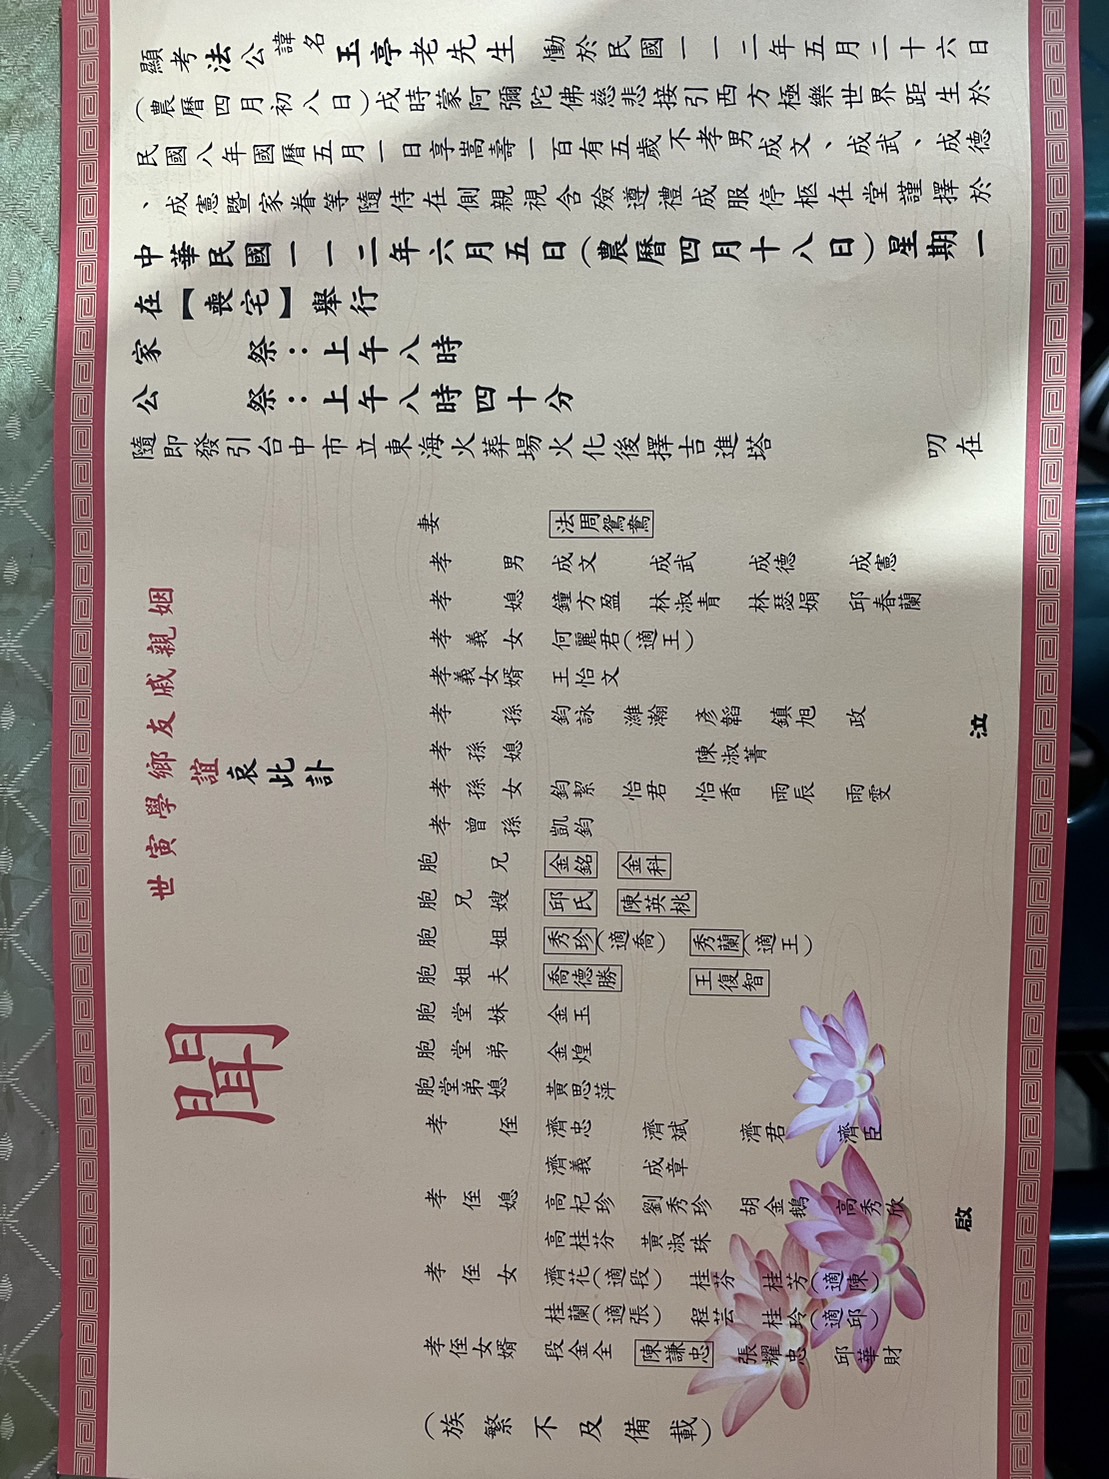 顯考法公諱名玉亭老先生 慟於民國一一二年五月二十六日
（農曆四月初八日）戌時蒙阿彌陀佛慈悲接引西方極樂世界距生於
民國八年國曆五月一日享嵩壽一百有五歲不孝男成文、成武、成德
、成憲暨家眷等隨侍在側親視含殮遵禮成服停柩在堂謹擇於
中華民國一一二年六月五日（農曆四月十八日）星期一
在【喪宅】舉行
家祭：上午八時
公祭：上午八時四十分
隨即發引台中市立東海火葬場火化後擇吉進塔 叨在
世寅學鄉友戚親姻
誼
哀
此
訃
聞
妻 法周鴛鴦
孝男 成文 成武 成德 成憲
孝媳 鐘方盈 林淑青 林瑟娟 邱春蘭
孝義女 何麗君（適王）
孝義女婿 王怡文
孝孫 鈞詠 濰瀚 彥韜 鎮旭 政
孝孫媳 陳淑菁
孝孫女 鈞絜 怡君 怡香 雨辰 雨雯
孝曾孫 凱鈞
胞兄 金銘 金科
胞兄嫂 邱氏 陳英桃
胞姐 秀珍（適喬） 秀蘭（適王）
胞姐夫 喬德勝 王復智
胞堂妹 金玉
胞堂弟 金煌
胞堂弟媳 黃思萍
孝侄 濟忠 濟斌 濟君 濟臣
濟義 成章
孝侄媳 高杞珍 劉秀珍 胡金鵝 高秀欣
高桂芬 黃淑珠
孝侄女 濟花（適段） 桂芬 桂芳（適陳）
桂蘭（適張） 程芸 桂玲（適邱）
孝侄女婿 段金全 陳謙忠 張耀忠 邱華財
（族繁不及備載）
泣啟